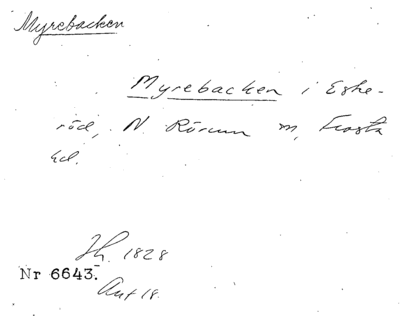 Myrebacken
Myrebacken i Eske-
röd, N. Rörum m, Frosta
hd.
Jh. 1828
Nr 6643.
Ant 18.